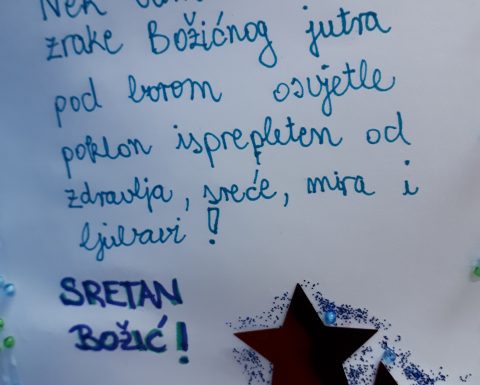 Nek
zrake Božićnog jutra
pod borom osvjetle
poklon isprepleten od
zdravlja, sreće, mira i
ljubavi!
SRETAN
BOŽIĆ!